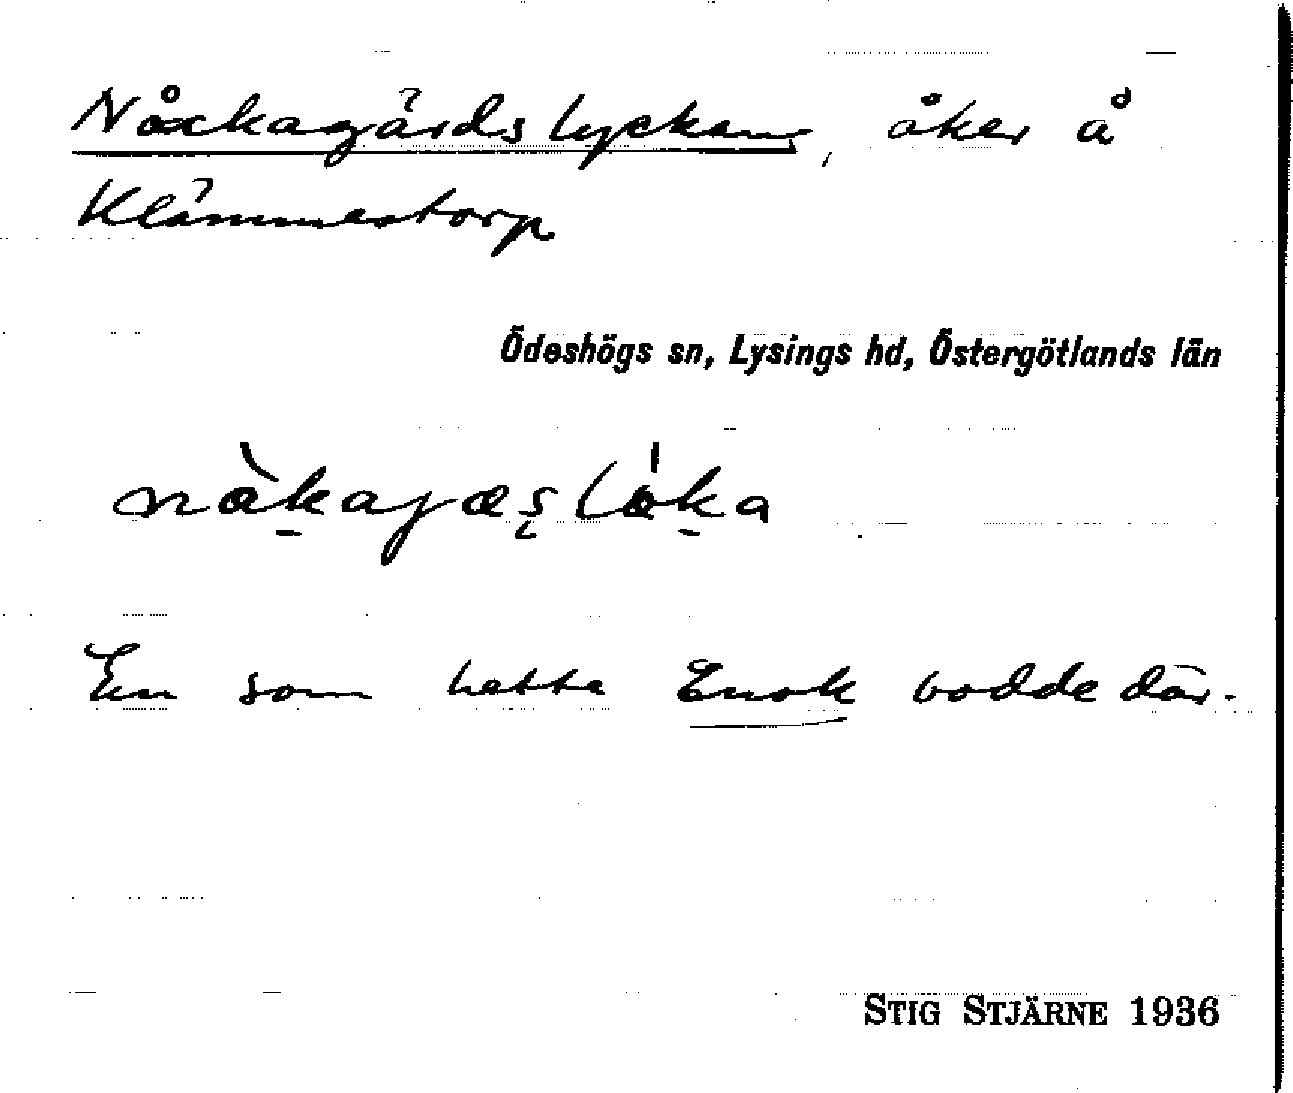 Nåckagärdslyckan, åker å
Klämmestorp
Ödeshögs sn, Lysings hd, Östergötlands län
En som hette Enok bodde där.
STIG STJÄRNE 1936